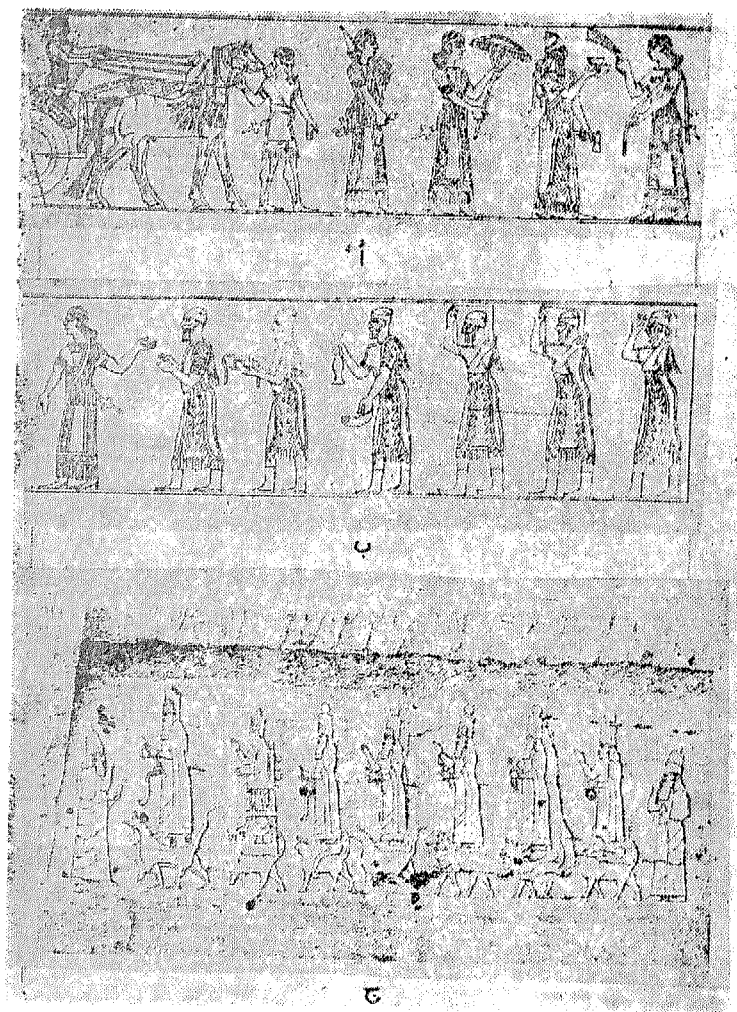 أ
ب
ج